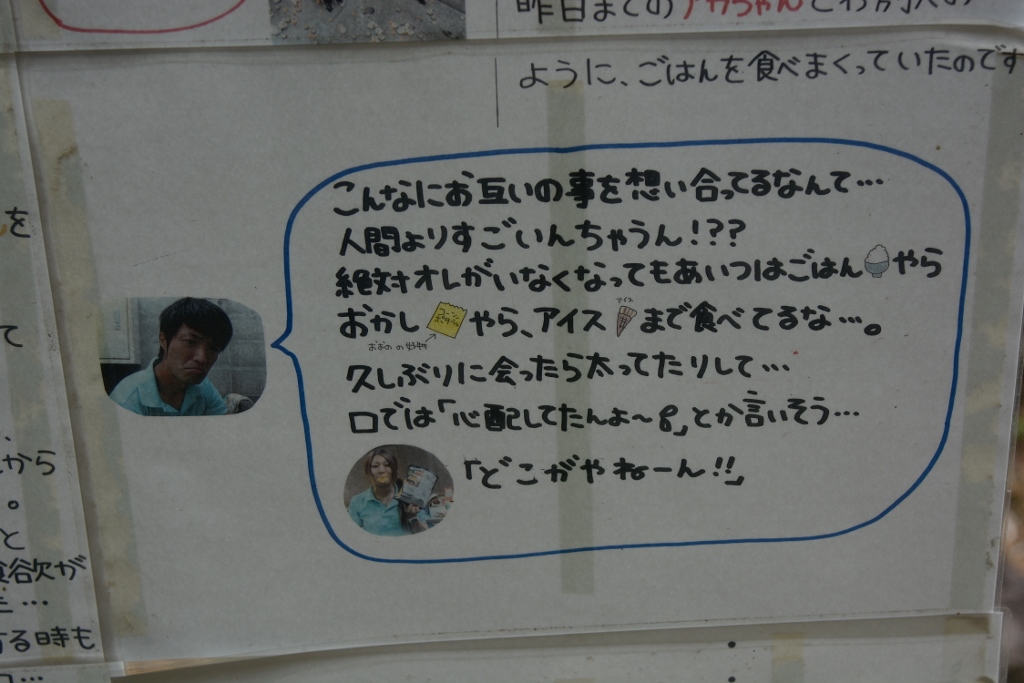 昨日までのアカちゃんとわ
ように、ごはんを食べまくっていたのです
こんなにお互いの事を想い合ってるなんて…
人間よりすごいんちゃうん!??
絶対オレがいなくなってもあいつはごはんやら
おかしやら、アイスまで食べてるな…。
アイス
久しぶりに会ったら太ってたりして…
口では「心配してたんよ〜」とか言いそう…
「どこがやねーん!!」
を
て
から
。
と
食欲が
…
する時も
…